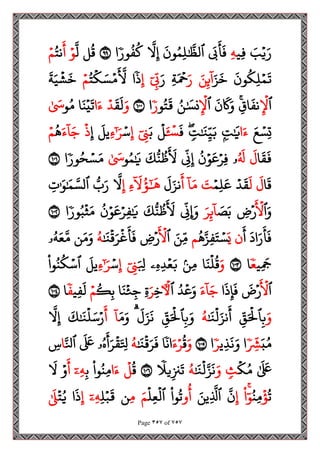 رَيْبَ فِيهِ فَأَبَى ٱلظَّـٰلِمُونَ إِلَّا كُفُورًا ٩٩ قُل لَّوْ أَنتُمْ
تَمْلِكُونَ خَزَآئِنَ رَحْمَةِ رَبِّىٓ إِذًا لَّأَمْسَكْتُمْ خَشْيَةَ
ٱلْإِنفَاقِ ۚ وَكَانَ ٱلْإِنسَـٰنُ قَتُورًا ١٠٠ وَلَقَدْ ءَاتَيْنَا مُوسَىٰ
تِسْعَ ءَايَـٰتٍۭ بَيِّنَـٰتٍ ۖ فَسْـَٔلْ بَنِىٓ إِسْرَٰٓءِيلَ إِذْ جَآءَهُمْ
فَقَالَ لَهُۥ فِرْعَوْنُ إِنِّى لَأَظُنُّكَ يَـٰمُوسَىٰ مَسْحُورًا ١٠١
قَالَ لَقَدْ عَلِمْتَ مَآ أَنزَلَ هَـٰٓؤُلَآءِ إِلَّا رَبُّ ٱلسَّمَـٰوَٰتِ
وَٱلْأَرْضِ بَصَآئِرَ وَإِنِّى لَأَظُنُّكَ يَـٰفِرْعَوْنُ مَثْبُورًا ١٠٢
فَأَرَادَ أَن يَسْتَفِزَّهُم مِّنَ ٱلْأَرْضِ فَأَغْرَقْنَـٰهُ وَمَن مَّعَهُۥ
جَمِيعًا ١٠٣ وَقُلْنَا مِنۢ بَعْدِهِۦ لِبَنِىٓ إِسْرَٰٓءِيلَ ٱسْكُنُوا۟
ٱلْأَرْضَ فَإِذَا جَآءَ وَعْدُ ٱلْـَٔاخِرَةِ جِئْنَا بِكُمْ لَفِيفًا ١٠٤
وَبِٱلْحَقِّ أَنزَلْنَـٰهُ وَبِٱلْحَقِّ نَزَلَ ۗ وَمَآ أَرْسَلْنَـٰكَ إِلَّا
مُبَشِّرًا وَنَذِيرًا ١٠٥ وَقُرْءَانًا فَرَقْنَـٰهُ لِتَقْرَأَهُۥ عَلَى ٱلنَّاسِ
عَلَىٰ مُكْثٍ وَنَزَّلْنَـٰهُ تَنزِيلًا ١٠٦ قُلْ ءَامِنُوا۟ بِهِۦٓ أَوْ لَا
تُؤْمِنُوٓا۟ ۚ إِنَّ ٱلَّذِينَ أُوتُوا۟ ٱلْعِلْمَ مِن قَبْلِهِۦٓ إِذَا يُتْلَىٰ
Page 357 of 757